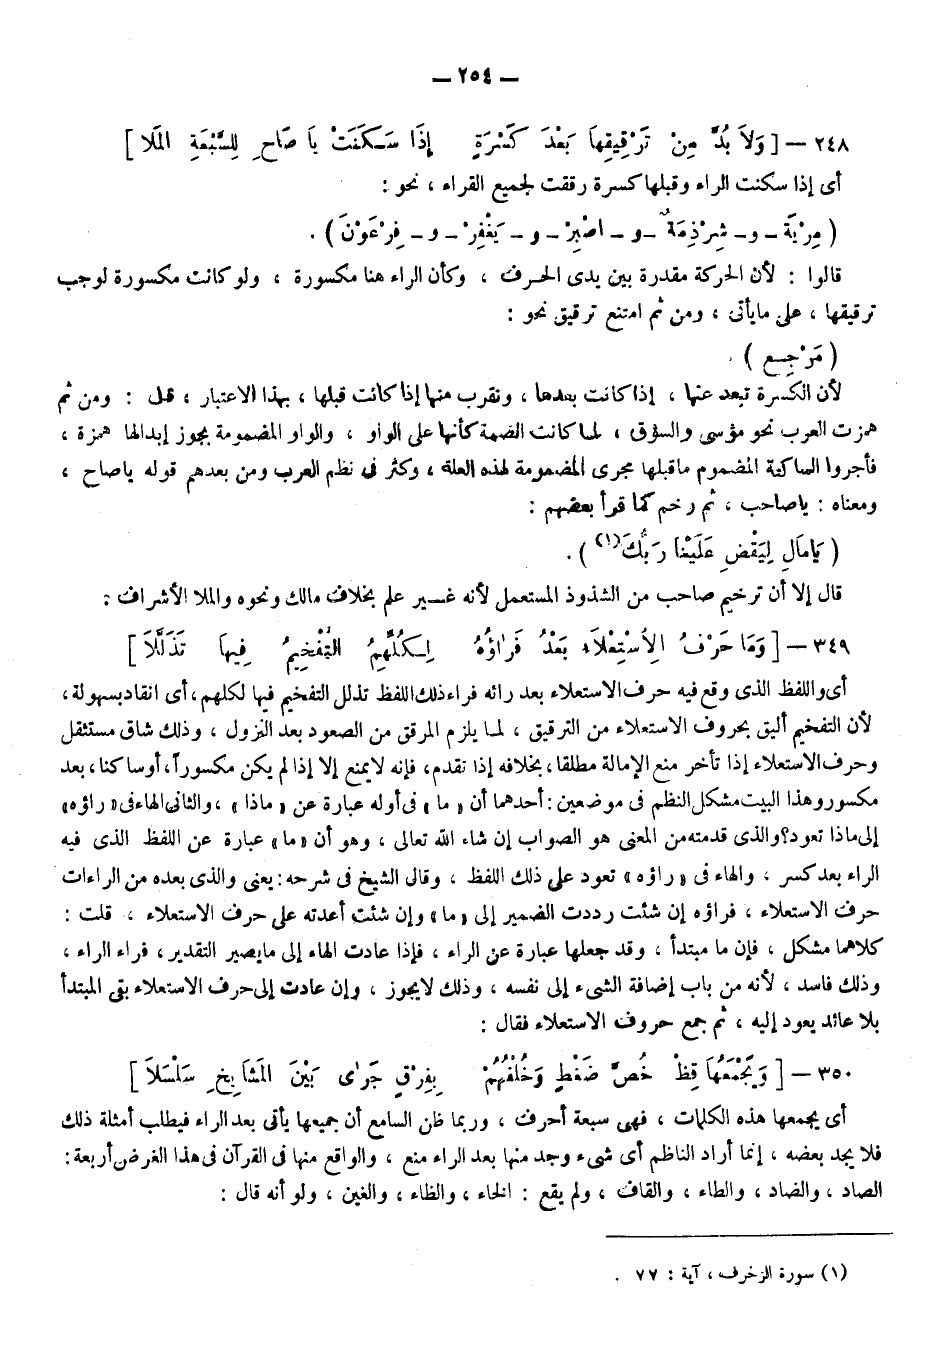 — ٢٥٤ —
٢٤٨ — [ وَلاَ بُدَّ مِنْ تَرْقِيقِهاَ بَعْدَ كَسْرَةٍ إِذَا سَـكَنَتْ ياَ صَاحِ لِلسَّبْعَةِ المَلَا ]
أى إذا سكنت الراء وقبلها كسرة رققت لجميع القراء ، نحو :
( مِرْيَةٌ ـ و ـ شِرْذِمَةٌ ـ و ـ اصْبِرْ ـ و ـ يَغْفِرْ ـ و ـ فِرْعَوْنَ ) .
قالوا : لأن الحركة مقدرة بين يدى الحرف ، وكأن الراء هنا مكسورة ، ولو كانت مكسورة لوجب
ترقيقها ، على مايأتى ، ومن ثم امتنع ترقيق نحو :
( مَرْجِـع ) .
لأن الكسرة تبعد عنها ، إذا كانت بعدها ، ونقرب منها إذا كانت قبلها ، بهذا الاعتبار ، قـل : ومن ثم
همزت العرب نحو مؤسى والسؤق ، لمـا كانت الضمة كأنها على الواو ، والواو المضمومة يجوز إبدالها همزة ،
فأجروا الساكنة المضموم ماقبلها مجرى المضمومة لهذه العلة ، وكثر فى نظم العرب ومن بعدهم قوله ياصاح ،
ومعناه : ياصاحب ، ثم رخم كما قرأ بعضهم :
( ياَمَالِ لِيَقْضِ عَلَيْنا رَبُّكَ(١) ) .
قال إلا أن ترخيم صاحب من الشذوذ المستعمل لأنه غـــير علم بخلاف مالك ونحوه والملا الأشراف :
٣٤٩ — [ وَمَا حَرْفُ الِاُسْتِعْلاَءِ بَعْدُ فَرَاؤُهُ لِـكُلِّهِمُ التَّفْخِيمُ فِيهاَ تَذَلَّلَا ]
أى واللفظ الذى وقع فيه حرف الاستعلاء بعد رائه فراء ذلك اللفظ تذلل التفخيم فيها لكلهم، أى انقاد بسهولة،
لأن التفخيم أليق بحروف الاستعلاء من الترقيق ، لمـا يلزم المرقق من الصعود بعد النزول ، وذلك شاق مستثقل
وحرف الاستعلاء إذا تأخر منع الإمالة مطلقا، بخلافه إذا تقدم، فإنه لايمنع إلا إذا لم يكن مكسوراً، أوساكنا، بعد
مكسور وهذا البيت مشكل النظم فى موضعين: أحدهما أن « ما » فى أوله عبارة عن « ماذا » ، والثانى الهاء فى « راؤه »
إلى ماذا تعود؟ والذى قدمته من المعنى هو الصواب إن شاء الله تعالى ، وهو أن « ما » عبارة عن اللفظ الذى فيه
الراء بعد كسر ، والهاء فى « راؤه » تعود على ذلك اللفظ ، وقال الشيخ فى شرحه: يعنى والذى بعده من الراءات
حرف الاستعلاء ، فراؤه إن شئت رددت الضمير إلى « ما » وإن شئت أعدته على حرف الاستعلاء ، قلت :
كلاهما مشكل ، فإن ما مبتدأ ، وقد جعلها عبارة عن الراء ، فإذا عادت الهاء إلى مايصير التقدير ، فراء الراء ،
وذلك فاسد ، لأنه من باب إضافة الشىء إلى نفسه ، وذلك لايجوز ، وإن عادت إلى حرف الاستعلاء بقى المبتدأ
بلا عائد يعود إليه ، ثم جمع حروف الاستعلاء فقال :
٣٥٠ — [ وَيَجْمَعُهاَ قِظْ خُصَّ ضَغْطٍ وَخُلْفُهُمْ بِفِرْقٍ جَرَى بَيْنَ المَشَايخِ سَلْسَلاَ ]
أى يجمعها هذه الكلمات ، فهى سبعة أحرف ، وربما ظن السامع أن جميعها يأتى بعد الراء فيطلب أمثلة ذلك
فلا يجد بعضه ، إنما أراد الناظم أى شىء وجد منها بعد الراء منع ، والواقع منها فى القرآن فى هذا الغرض أربعة :
الصاد ، والضاد ، والطاء ، والقاف ، ولم يقع : الخاء ، والظاء ، والغين ، ولو أنه قال :
(١) سورة الزخرف ، آية : ٧٧ .